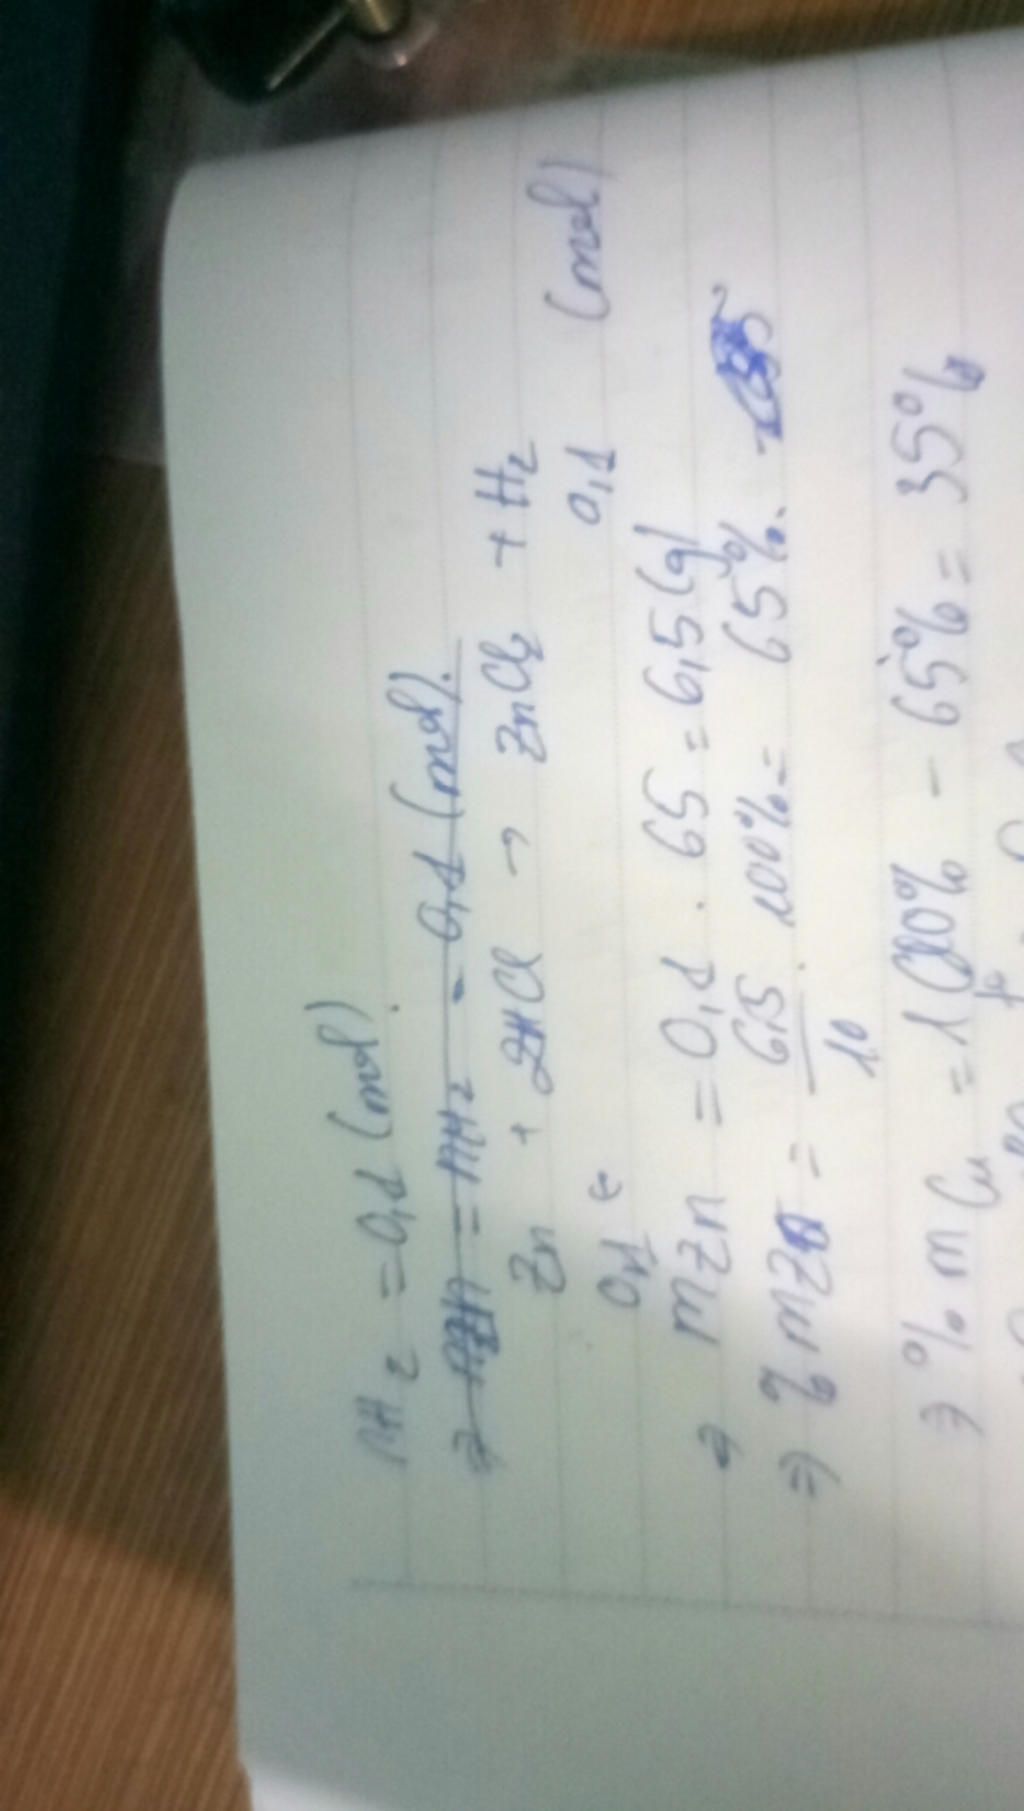 nH2 = 0,1 (mol)
⇒ nZn = nH2 = 0,1 (mol).
Zn + 2HCl → ZnCl2 + H2
0,1 ← 0,1 (mol)
⇒ mZn = 0,1 . 65 = 6,5 (g)
⇒ % mZn = 6,5/10 . 100% = 65%.
⇒ % m Cu = 100% - 65% = 35%